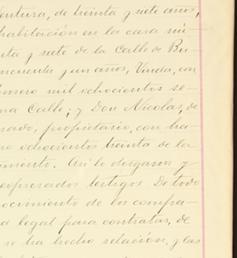 entura, de treinta y siete años,
habitacion en la casa nú
nta y siete de la Calle de Bu
noventa y un años, Viuda, con
úmero mil ochocientos se
ma Calle; y Don Nicolas, de
sado, propietario, con ha
ro ochocientos treinta de la
amento. Así lo otorgaron y
expresados testigos. De todo
ocimiento de los compa
d legal para contratar, de
se ha hecho relacion, y las